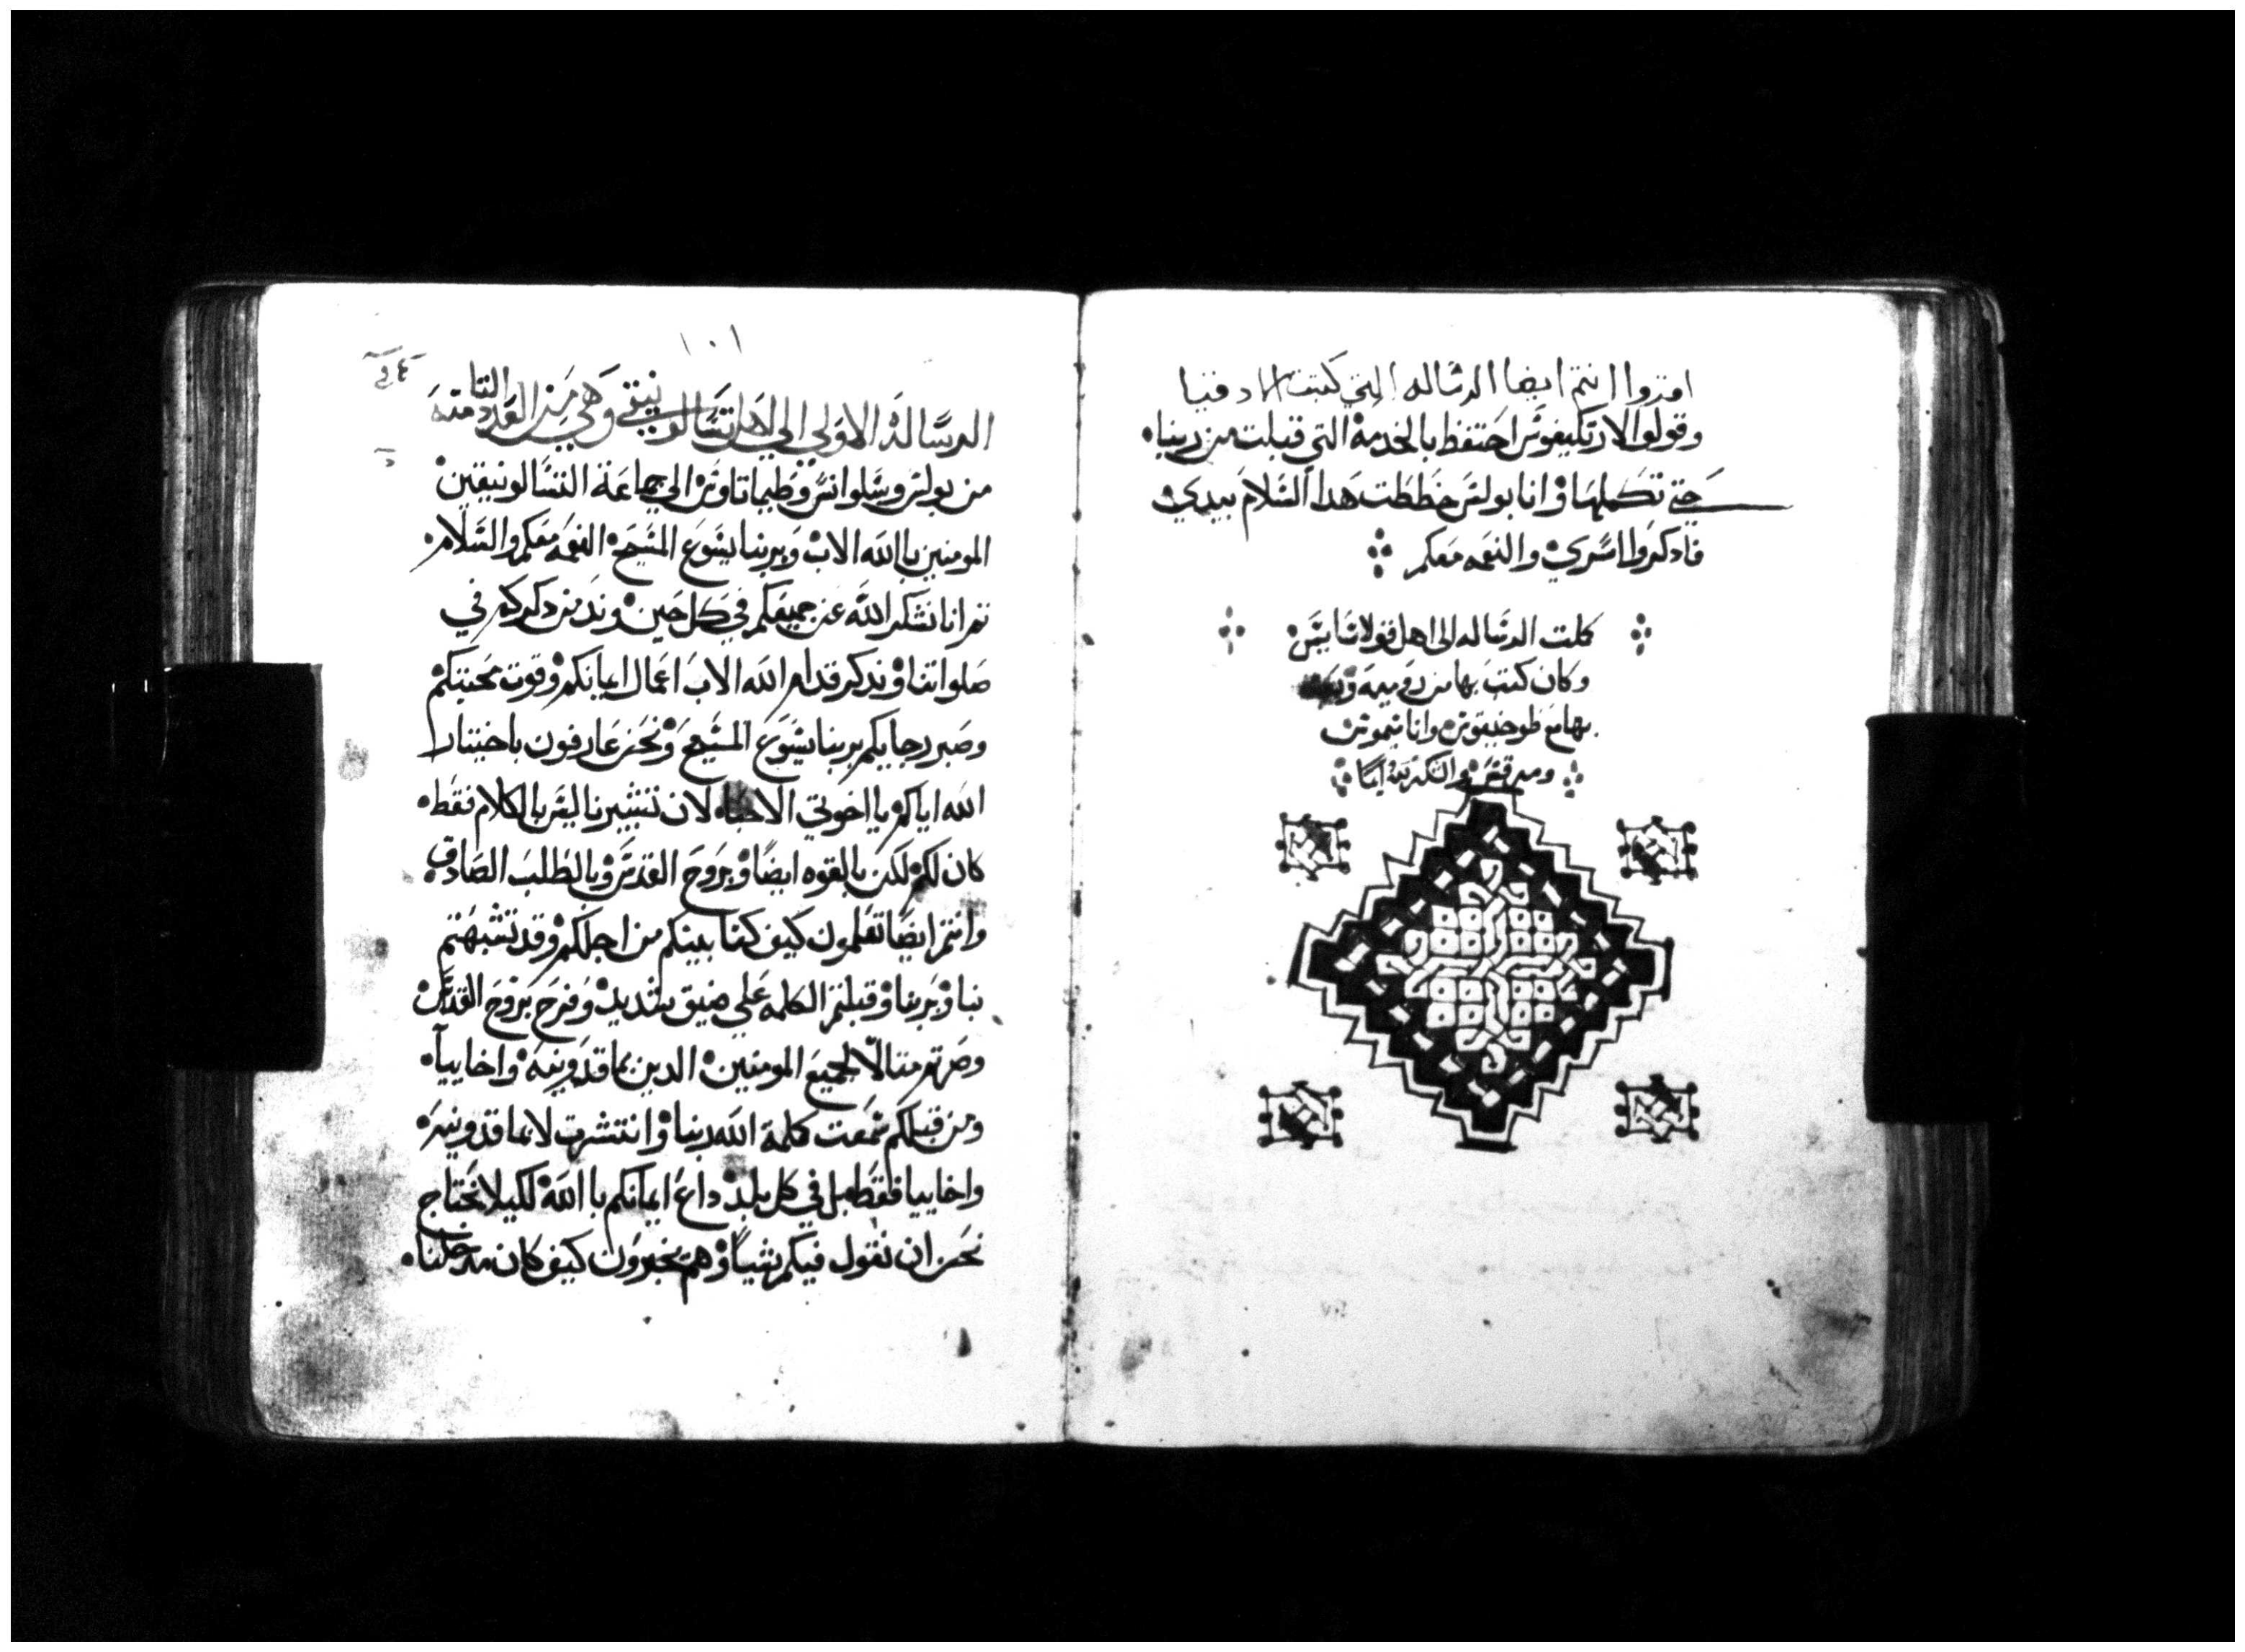 اقروا انتم ايضا الرساله التي كتبت من لادقيا
وقولوا لارتكيفوس احتفظ بالخدمة التي قبلت من ربنا
حتي تكملها وانا بولس خططت هدا السلام بيدي
فادكروا اسري والنعمه معكم
كملت الرساله الى اهل قولاسايس
وكان كتب بها من روميه
بها مع طوخيقوس وانا سيموس
ومرقس
١٠١
الرسالة الاولى الى اهل تسالونيقي وهي من العدد الثامنة
من بولس وسلوانس وطيماتاوس الي جماعة التسالونيقين
المومنين باالله الاب وبربنا يسوع المسيح النعمه معكم والسلام
نم انا نشكر الله عن جميعكم في كل حين وندمن دكركم في
صلواتنا وندكر قدام الله الاب اعمال ايمانكم وقوت محبتكم
وصبر رجايكم بربنا يسوع المسيح ونحن عارفون باختيار
الله اياكم يا اخوتي الاحباء لان تبشيرنا ليس بالكلام فقط
كان لكم لكن بالقوه ايضا وبروح القدس وبالطلب الصادق
وانتم ايضا تعلمون كيف كنا بينكم من اجلكم وقد تشبهتم
بنا وبربنا وقبلتم الكلمه علي ضيق شديد وفرح بروح القدس
وصرتم متالا لجميع المومنين الدين بماقدونيه واخاييا
ومن قبلكم سمعت كلمة الله ربنا وانتشرت لا بماقدونيه
واخاييا فقط بل في كل بلد داع ايمانكم باالله لكيلا نحتاج
نحن ان نقول فيكم شيا وهم يخبرون كيف كان مدخلنا